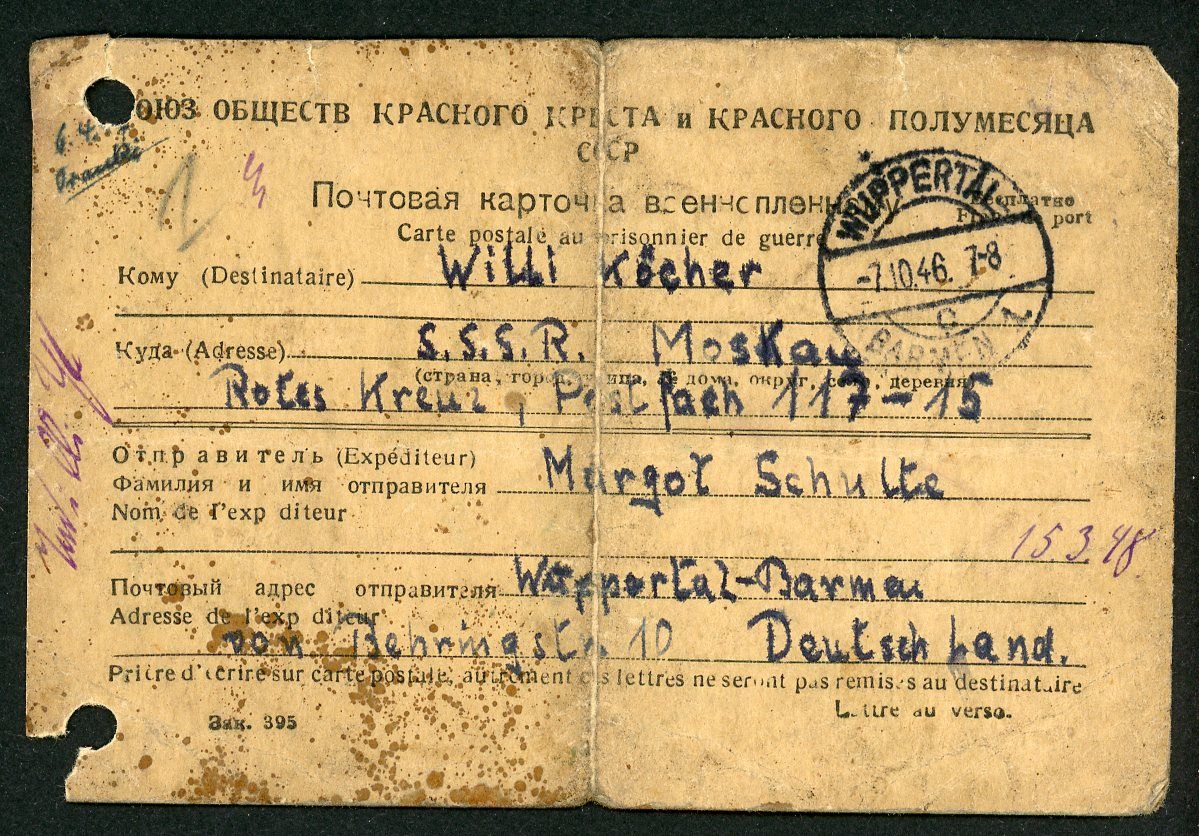 СОЮЗ ОБЩЕСТВ КРАСНОГО КРЕСТА и КРАСНОГО ПОЛУМЕСЯЦА
СССР
6.4.
Почтовая карточка военнопленному
Бесплатно
Franc de port
Carte postale au prisonnier de guerre
WUPPERTAL
-7.10.46. 7-8
c
BARMEN 1
Кому (Destinataire) Willi Köcher
Куда (Adresse) S.S.S.R. Moskau
(страна, город, улица, № дома, округ, село, деревня)
Rotes Kreuz, Postfach 117-15
Отправитель (Expéditeur)
Фамилия и имя отправителя Margot Schulte
Nom de l'exp diteur
15.3.48.
Почтовый адрес отправителя Wuppertal-Barmen
Adresse de l'exp diteur
von Behringstr. 10 Deutschland.
Prière d'écrire sur carte postale, autrement ces lettres ne seront pas remises au destinataire
Зак. 395
Lettre au verso.